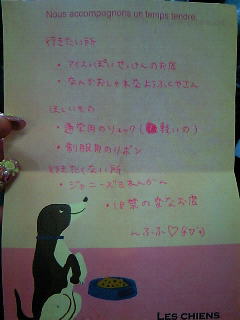 Nous accompagnons un temps tendre.
行きたい所
・アイスっぽいせっけんのお店
・なんかおしゃれなようふくやさん
ほしいもの
・通学用のリュック(軽いの)
・制服用のリボン
行きたくない所
・ジャニーズ
・原の変なお店
んふふ♡
LES CHIENS